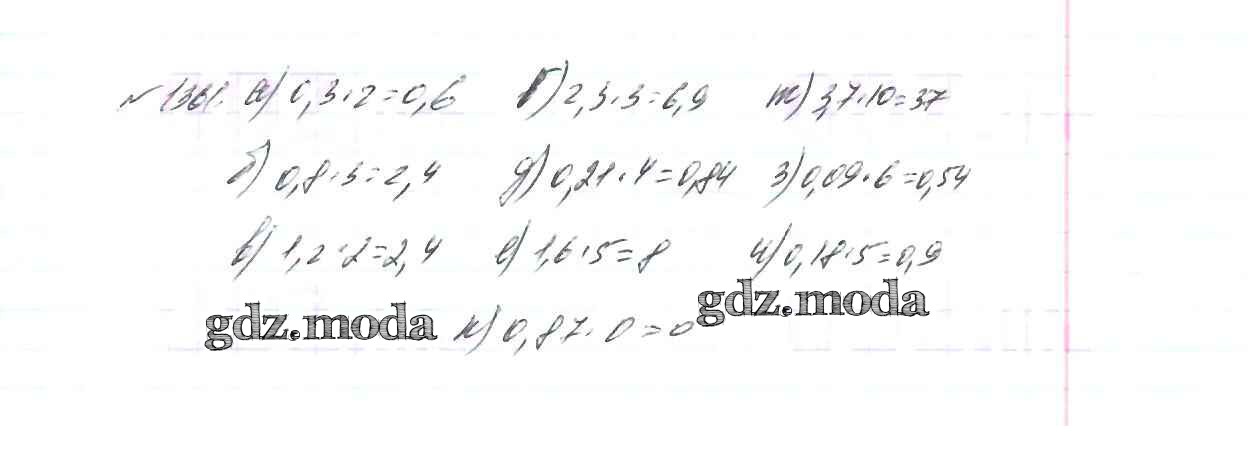 №1361. а) 0,3·2=0,6 г) 2,3·3=6,9 ж) 3,7·10=37
б) 0,8·3=2,4 д) 0,21·4=0,84 з) 0,09·6=0,54
в) 1,2·2=2,4 е) 1,6·5=8 и) 0,18·5=0,9
gdz.moda к) 0,87·0=0 gdz.moda